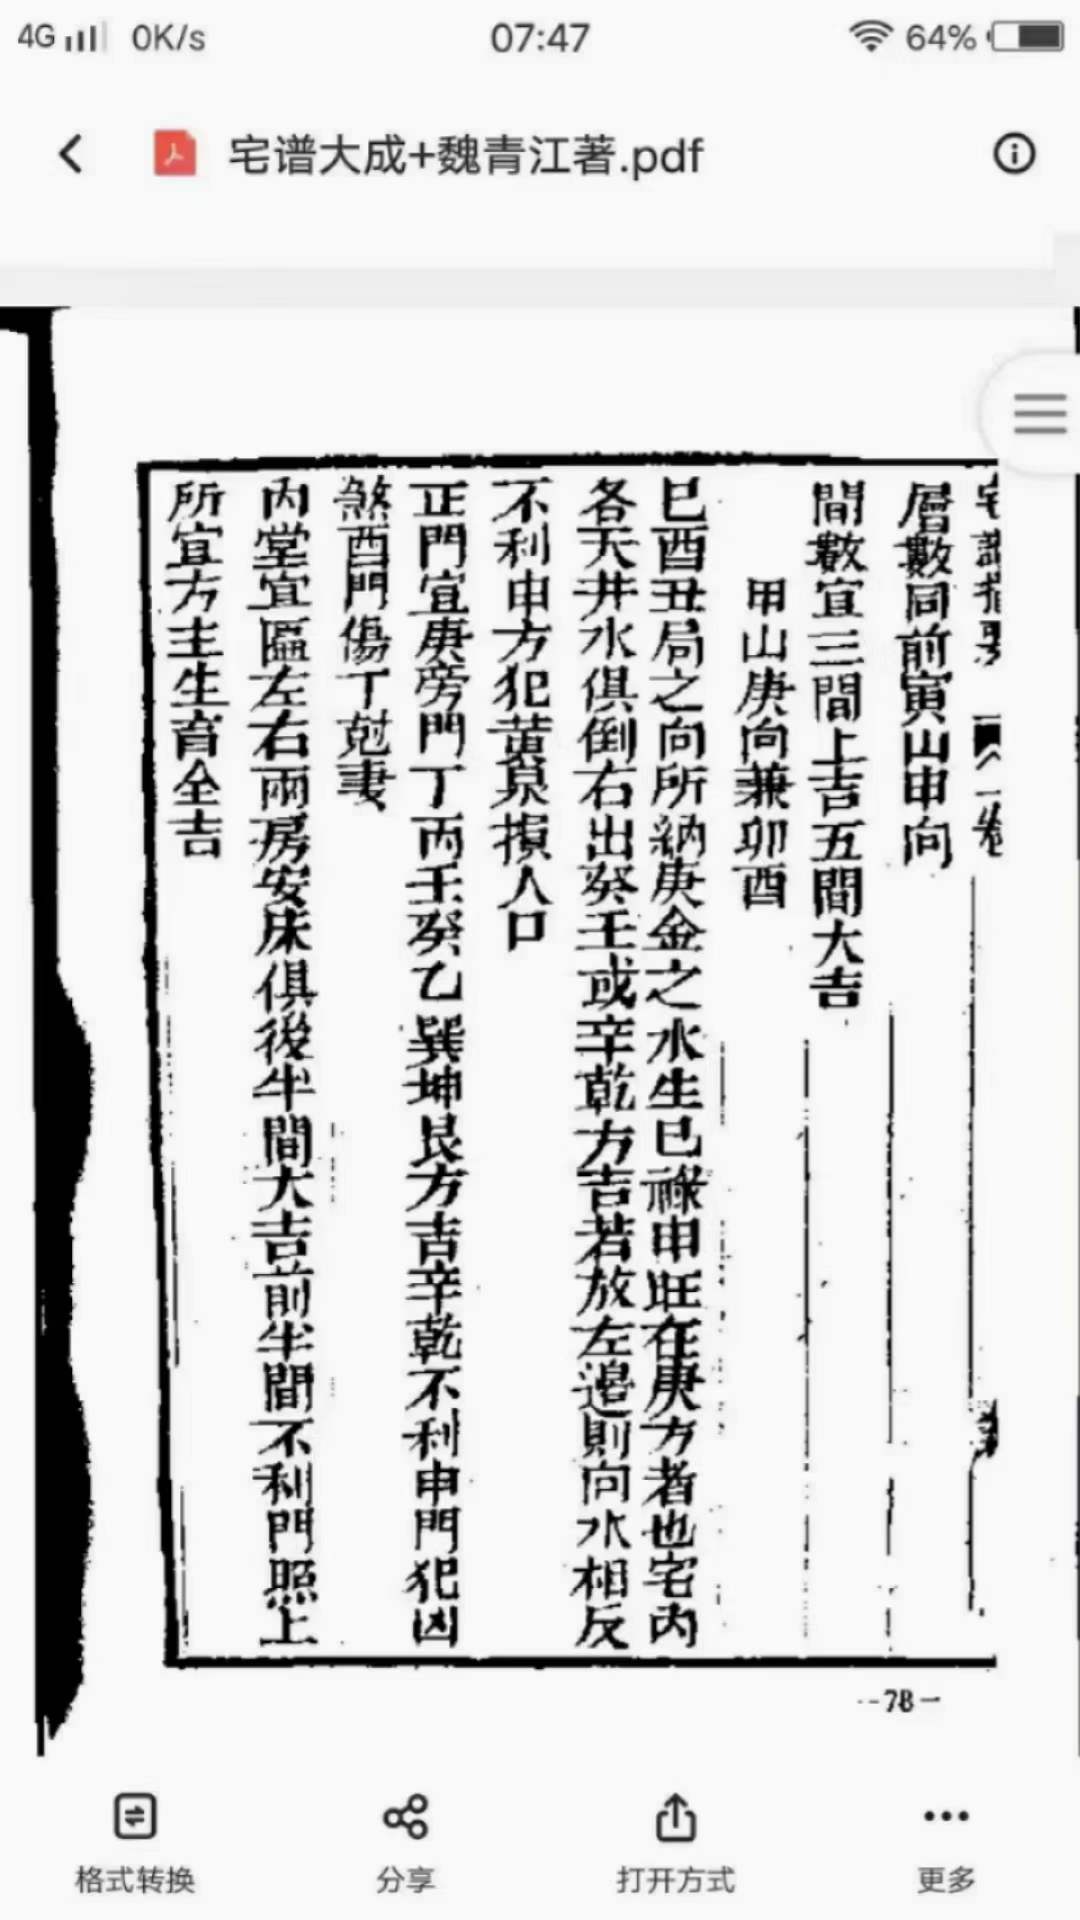 4G 0K/s 07:47 64%
宅谱大成+魏青江著.pdf
層數同前寅山申向
間數宜三間上吉五間大吉
甲山庚向兼卯酉
巳酉丑局之向所納庚金之水生巳祿申旺在庚方者也宅內
各天井水俱倒右出癸壬或辛乾方吉若放左邉則向水相反
不利申方犯黄泉損人口
正門宜庚旁門丁丙壬癸乙巽坤艮方吉辛乾不利申門犯凶
煞酉門傷丁尅妻
內堂宜區左右兩房安床俱後半間大吉前半間不利門照上
所宜方主生育全吉
--78-
格式转换
分享
打开方式
更多